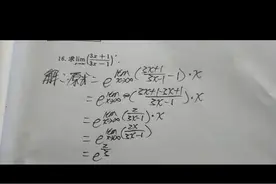 16. 求lim x→∞ (3x+1 / 3x−1)^x.
解:原式= e^{lim x→∞ (3x+1 / 3x−1 − 1)·x}
= e^{lim x→∞ (3x+1−3x+1 / 3x−1)·x}
= e^{lim x→∞ (2 / 3x−1)·x}
= e^{lim x→∞ (2x / 3x−1)}
= e^{2/3}